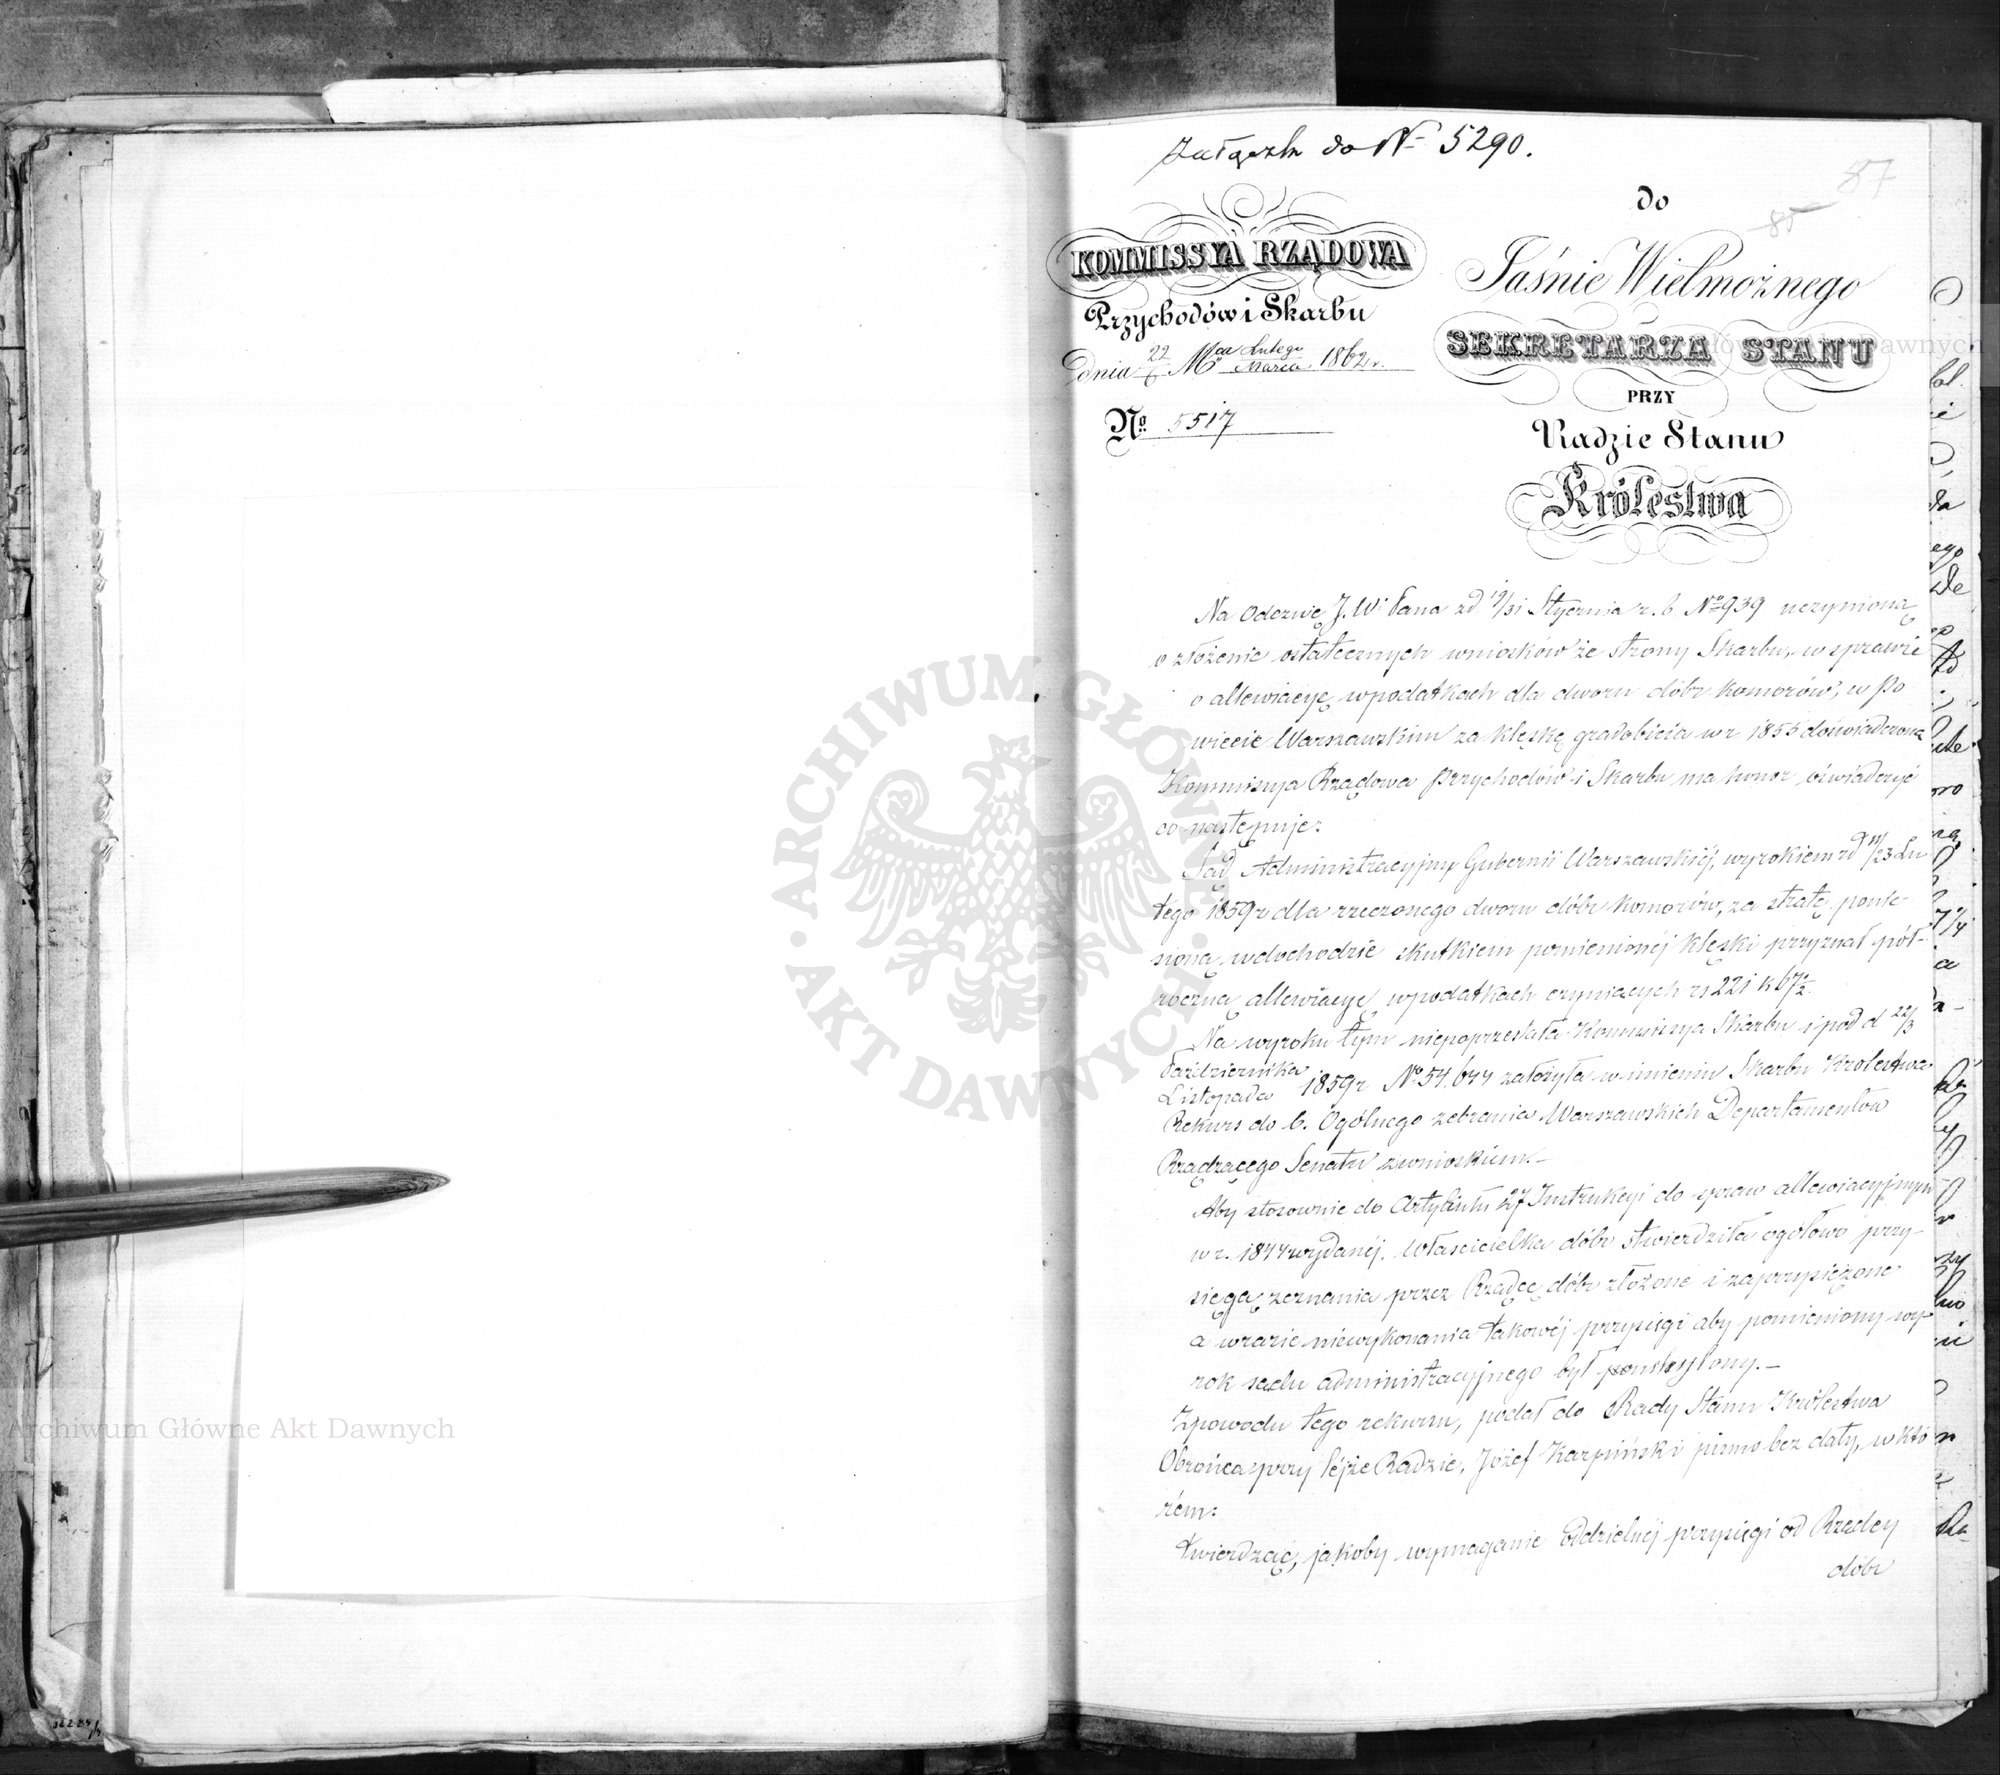 Załącznik do № 5290.
87
85
KOMMISSYA RZĄDOWA
Przychodów i Skarbu
dnia 22/6 Mca Lutego/Marca 1862 r.
No. 5517
do
Jaśnie Wielmożnego
SEKRETARZA STANU
PRZY
Radzie Stanu
Królestwa
Na Odezwę J. Wo Pana z d 19/31 Stycznia r. b. No 939 uczynioną
o złożenie ostatecznych wniosków ze strony Skarbu, w sprawie
o allewiacyę w podatkach dla dworu dóbr Komorów, w Po
wiecie Warszawskim za klęskę gradobicia w r 1855 doświadczoną
Kommissya Rządowa Przychodów i Skarbu ma honor oświadczyć
co następuje:
Sąd Administracyjny Gubernii Warszawskiéj, wyrokiem z d 11/23 Lu
tego 1859 r dla rzeczonego dworu dóbr Komorów, za stratę ponie-
sioną w dochodzie skutkiem pomienionéj klęski przyznał pół-
roczną allewiacyę w podatkach czyniących rs 221 k 67 1/2.
Na wyroku tym niepoprzestała Kommissya Skarbu i pod d 22/3
Października/Listopada 1859 r No 54.644 założyła w imieniu Skarbu Królestwa
Rekurs do b. Ogólnego zebrania Warszawskich Departamentów
Rządzącego Senatu z wnioskiem.—
Aby stosownie do Artykułu 27 Instrukcyi do spraw allewiacyjnych
w r. 1844 wydanéj, właścicielka dóbr stwierdziła ogółowo przy-
sięgą zeznania przez Rządcę dóbr złożone i zaprzysiężone
a w razie niewykonania takowéj przysięgi aby pomieniony wy
rok sądu administracyjnego był uchylony.—
Z powodu tego rekursu, podał do Rady Stanu Królestwa
Obrońca przy téjże Radzie, Józef Karpiński pismo bez daty, w któ
rém:
twierdząc, jakoby wymaganie oddzielnéj przysięgi od Rządcy
dóbr
ARCHIWUM GŁÓWNE · AKT DAWNYCH ·
Archiwum Główne Akt Dawnych